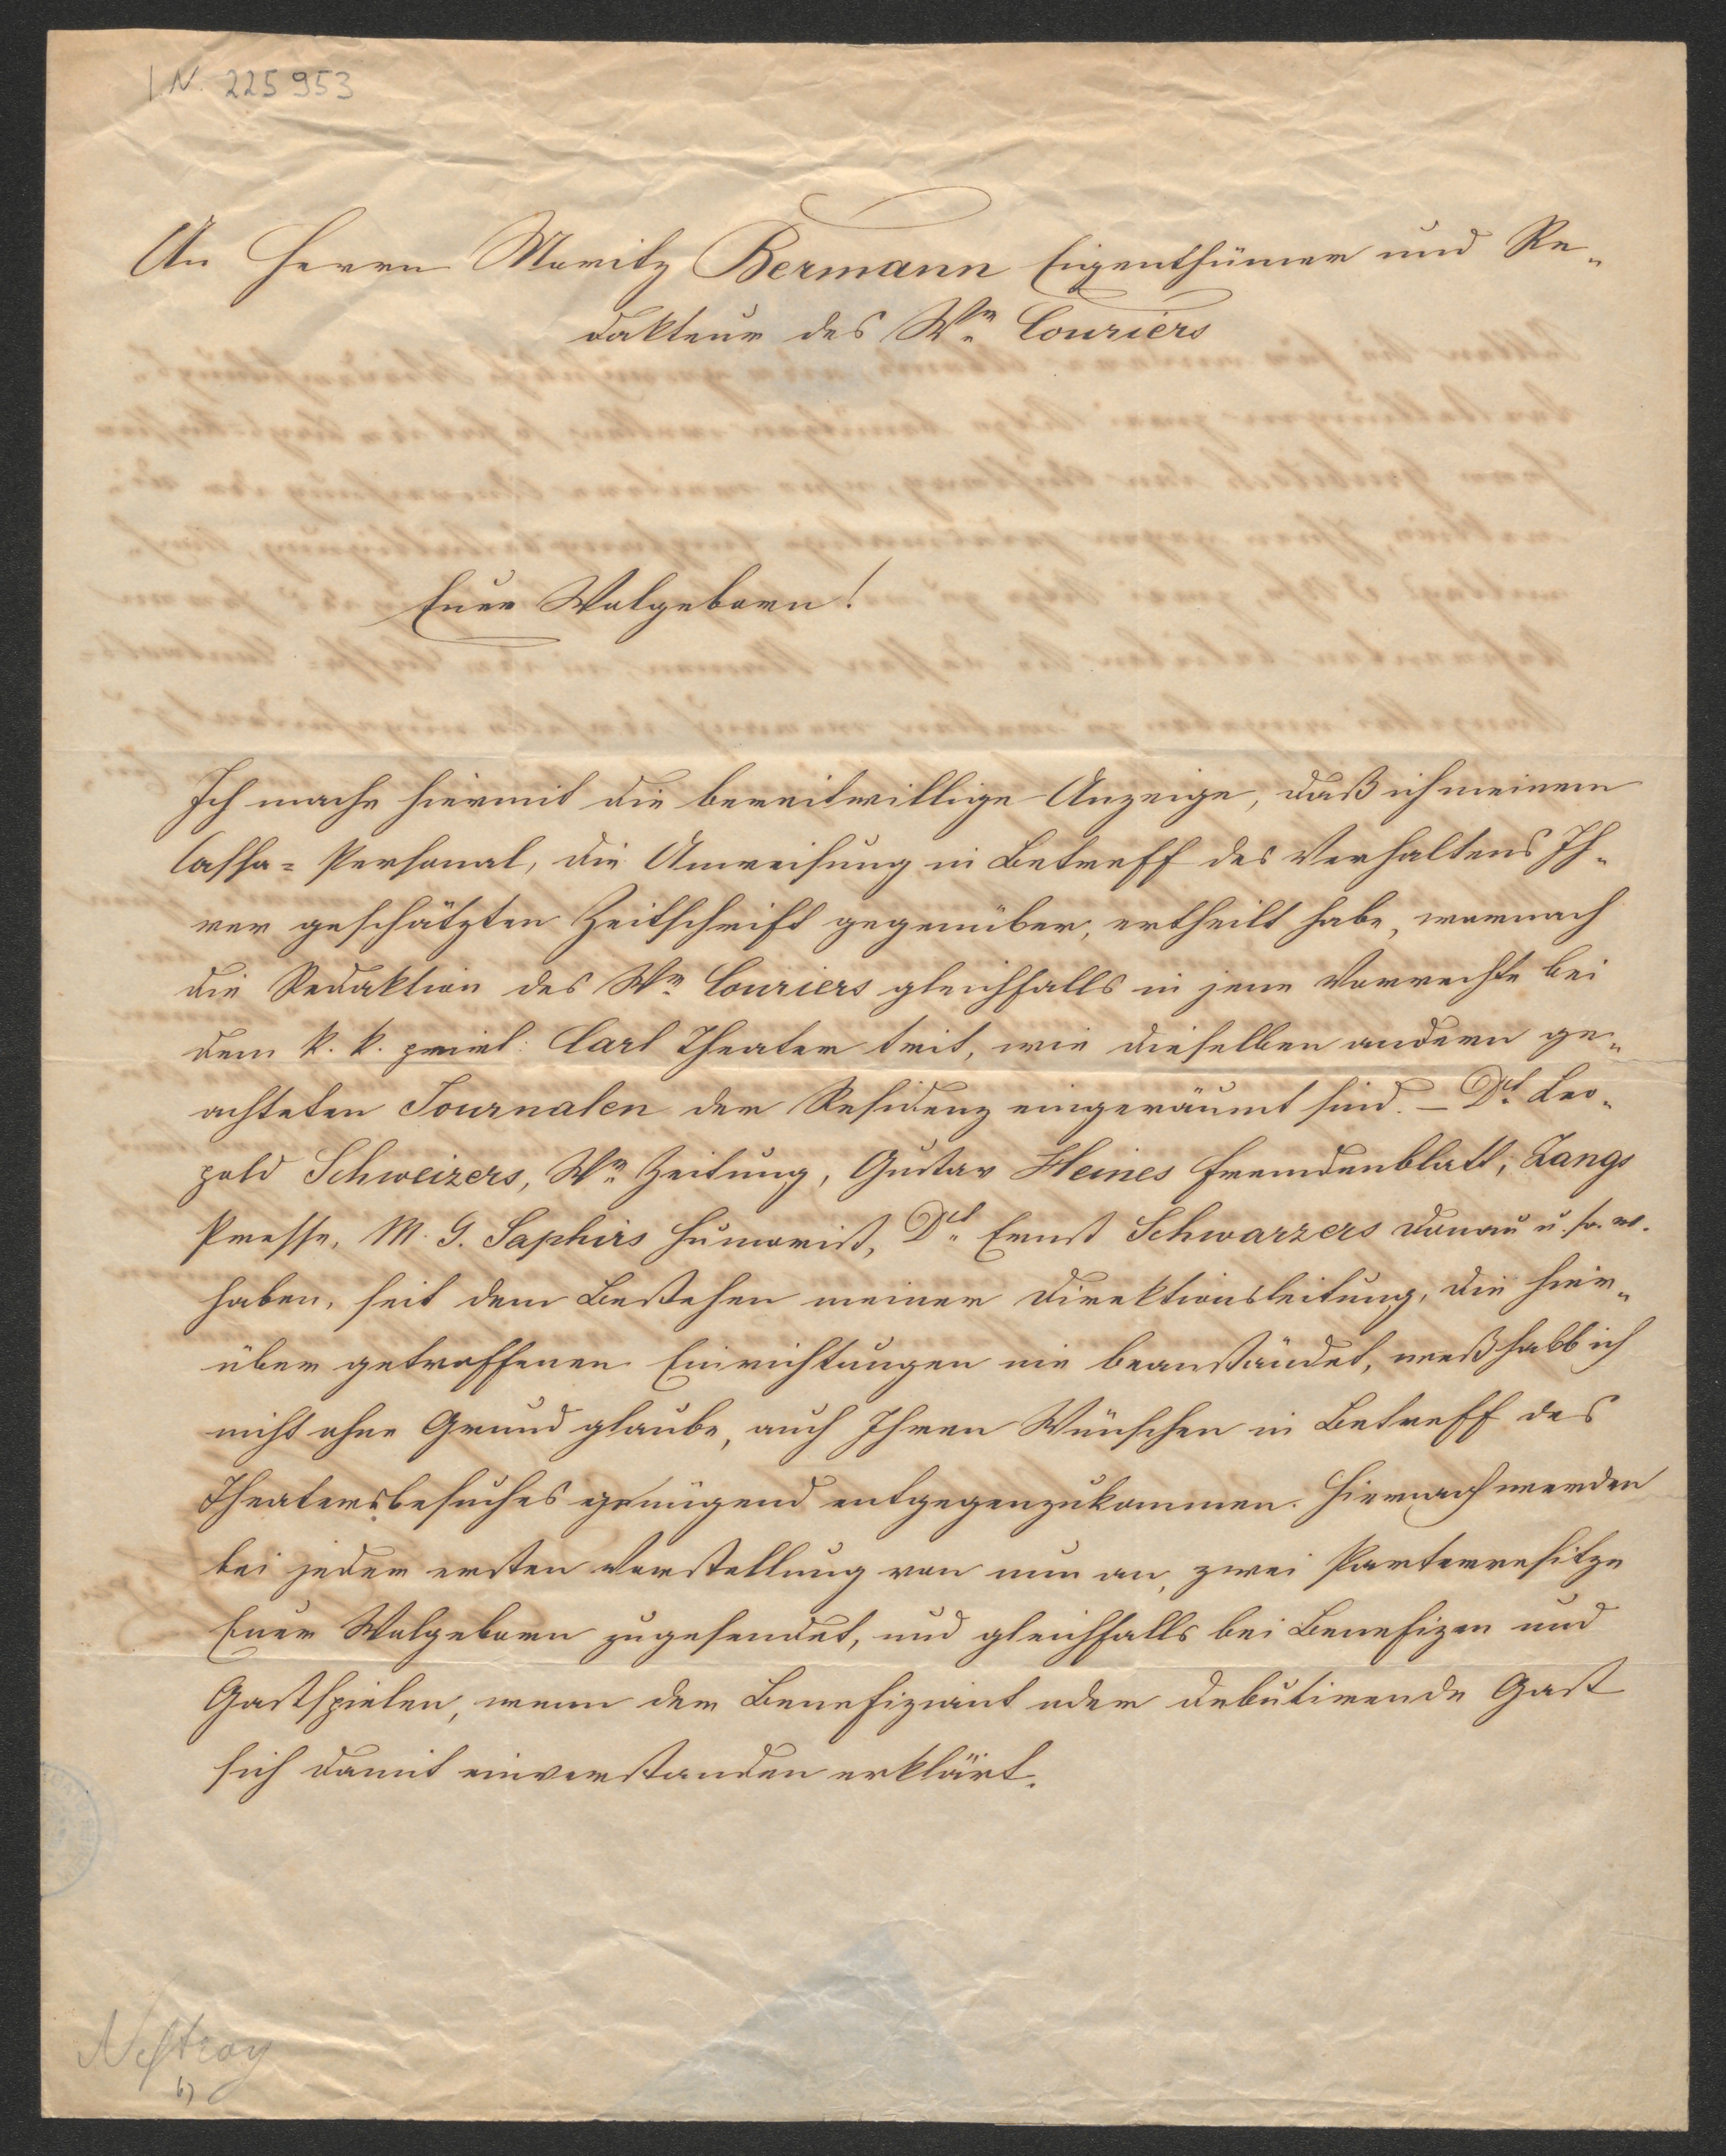 I.N. 225953
An Herrn Moritz Bermann Eigenthümer und Re-
dakteur des Wr. Couriers
Euer Wolgeboren!
Ich mache hiermit die bereitwillige Anzeige, daß ich meinem
Cassa-Personal, die Anweisung in Betreff des Verhaltens Ih-
rer geschätzten Zeitschrift gegenüber, ertheilt habe, wornach
die Redaktion des Wr. Couriers gleichfalls in jene Vorrechte bei
dem k. k. privil: Carl Theater trit, wie dieselben andern ge-
achteten Journalen der Residenz eingeräumt sind. – Dr. Leo-
pold Schweizers, Wr. Zeitung, Gustav Heines Fremdenblatt, Zangs
Presse, M. G. Saphirs Humorist, Dr. Ernst Schwarzers Donau u. s. w.
haben, seit dem Bestehen meiner Direktionsleitung, die hier-
über getroffenen Einrichtungen nie beanständet, weßhalb ich
nicht ohne Grund glaube, auch Ihren Wünschen in Betreff des
Theatersbesuches genügend entgegenzukommen. Hiernach werden
bei jeder ersten Vorstellung von nun an, zwei Parterresitze
Euer Wolgeboren zugesendet, und gleichfalls bei Benefizen und
Gastspielen, wenn der Benefiziant oder debutirende Gast
sich damit einverstanden erklärt.
Nestroy